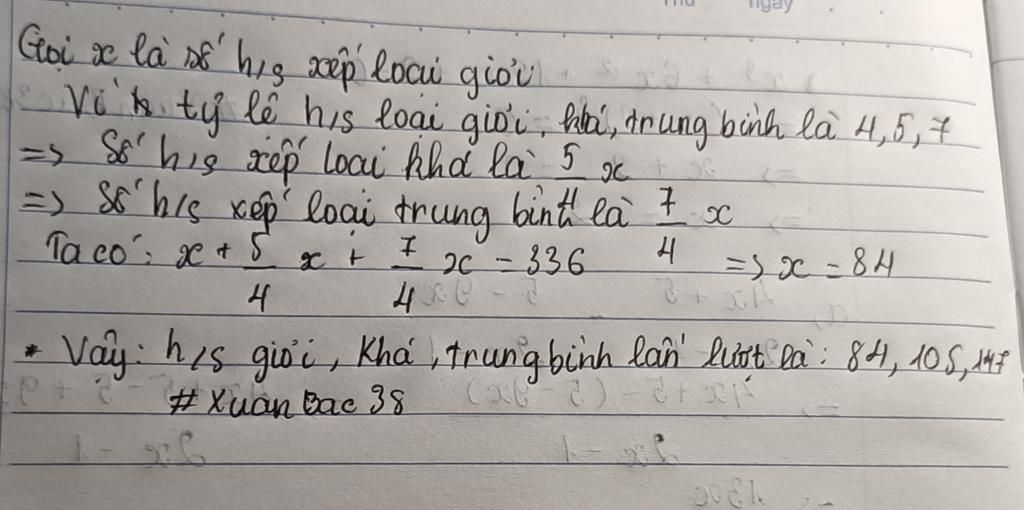 ngày
Gọi x là số h/s xếp loại giỏi
Vì tỷ lệ h/s loại giỏi, khá, trung bình là 4, 5, 7
=> Số h/s xếp loại khá là 5/4 x
=> Số h/s xếp loại trung bình là 7/4 x
Ta có: x + 5/4 x + 7/4 x = 336 => x = 84
* Vậy: h/s giỏi, Khá, trung bình lần lượt là: 84, 105, 147
# Xuân Bac 38